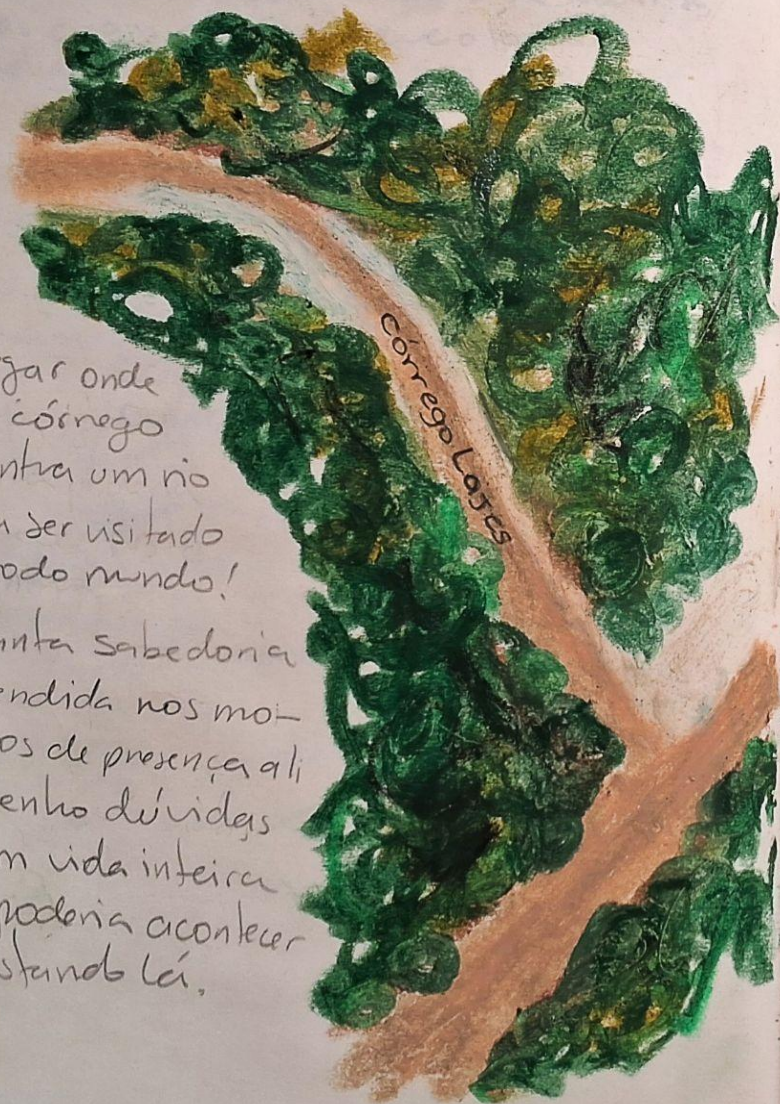 gar onde
córrego
ntra um rio
a ser visitado
odo mundo!
anta sabedoria
endida nos mo-
os de presença ali
enho dúvidas
m vida inteira
poderia acontecer
stando lá.
Córrego Lajes